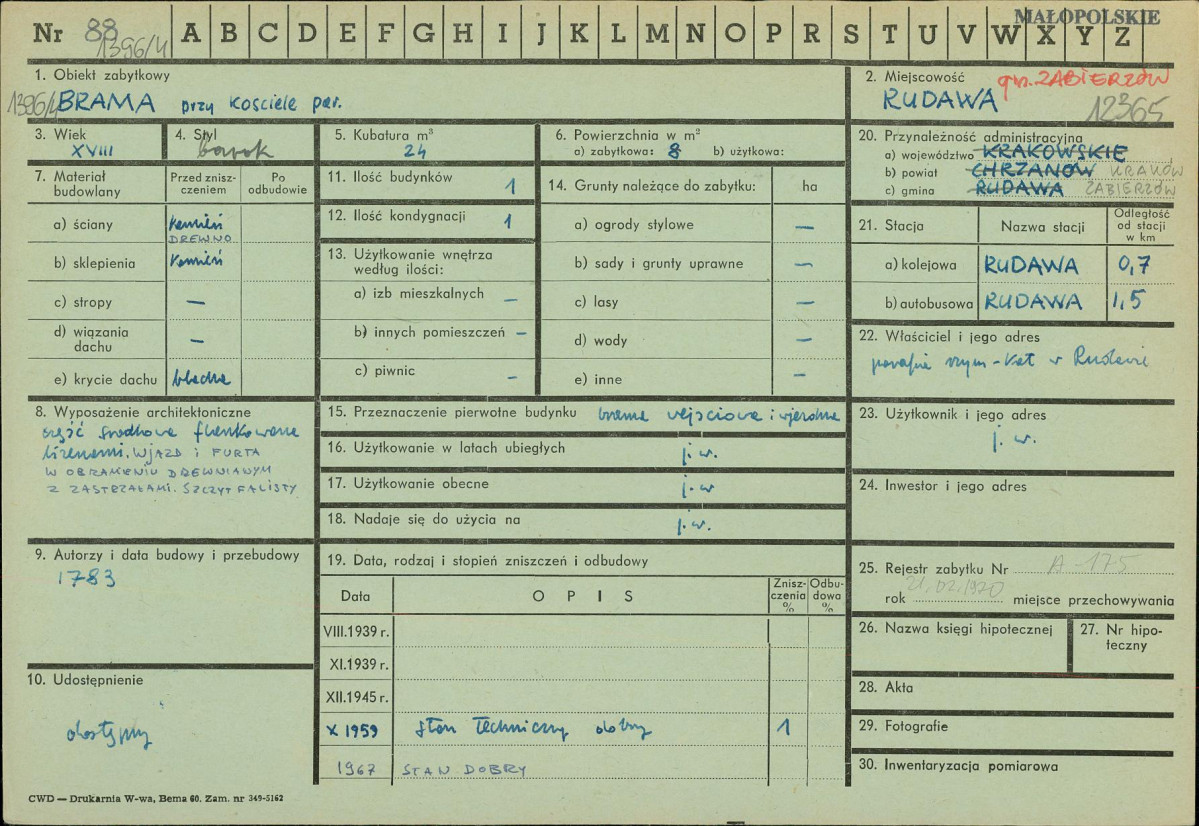 Nr 88 A B C D E F G H I J K L M N O P R S T U V W X Y Z MAŁOPOLSKIE
1396/4
1. Obiekt zabytkowy
1396/4 BRAMA przy kościele par.
2. Miejscowość gm. ZABIERZÓW
RUDAWA
12365
3. Wiek
XVIII
4. Styl
barok
5. Kubatura m³
24
6. Powierzchnia w m²
a) zabytkowa: 8 b) użytkowa:
7. Materiał budowlany
Przed zniszczeniem
Po odbudowie
a) ściany kamień
DREWNO
b) sklepienia kamień
c) stropy —
d) wiązania dachu —
e) krycie dachu blacha
11. Ilość budynków 1
12. Ilość kondygnacji 1
13. Użytkowanie wnętrza
według ilości:
a) izb mieszkalnych —
b) innych pomieszczeń —
c) piwnic —
14. Grunty należące do zabytku: ha
a) ogrody stylowe —
b) sady i grunty uprawne —
c) lasy —
d) wody —
e) inne —
20. Przynależność administracyjna
a) województwo KRAKOWSKIE
b) powiat CHRZANÓW KRAKÓW
c) gmina RUDAWA ZABIERZÓW
21. Stacja Nazwa stacji Odległość od stacji w km
a) kolejowa RUDAWA 0,7
b) autobusowa RUDAWA 1,5
22. Właściciel i jego adres
parafia rzym-kat w Rudawie
8. Wyposażenie architektoniczne
część środkowa flankowana
lizenami. WJAZD i FURTA
W OBRAMIENIU DREWNIANYM
Z ZASTRZAŁAMI. SZCZYT FALISTY
15. Przeznaczenie pierwotne budynku brama wejściowa i wjezdna
16. Użytkowanie w latach ubiegłych j.w.
17. Użytkowanie obecne j.w
18. Nadaje się do użycia na j.w.
23. Użytkownik i jego adres
j. w.
24. Inwestor i jego adres
9. Autorzy i data budowy i przebudowy
1783
19. Data, rodzaj i stopień zniszczeń i odbudowy
Data OPIS Zniszczenia % Odbudowa %
VIII.1939 r.
XI.1939 r.
XII.1945 r.
X 1959 stan techniczny dobry 1
1967 STAN DOBRY
25. Rejestr zabytku Nr A-175
rok 21.02.1970 miejsce przechowywania
26. Nazwa księgi hipotecznej
27. Nr hipoteczny
28. Akta
29. Fotografie
30. Inwentaryzacja pomiarowa
10. Udostępnienie
dostępny
CWD — Drukarnia W-wa, Bema 60. Zam. nr 349-5162